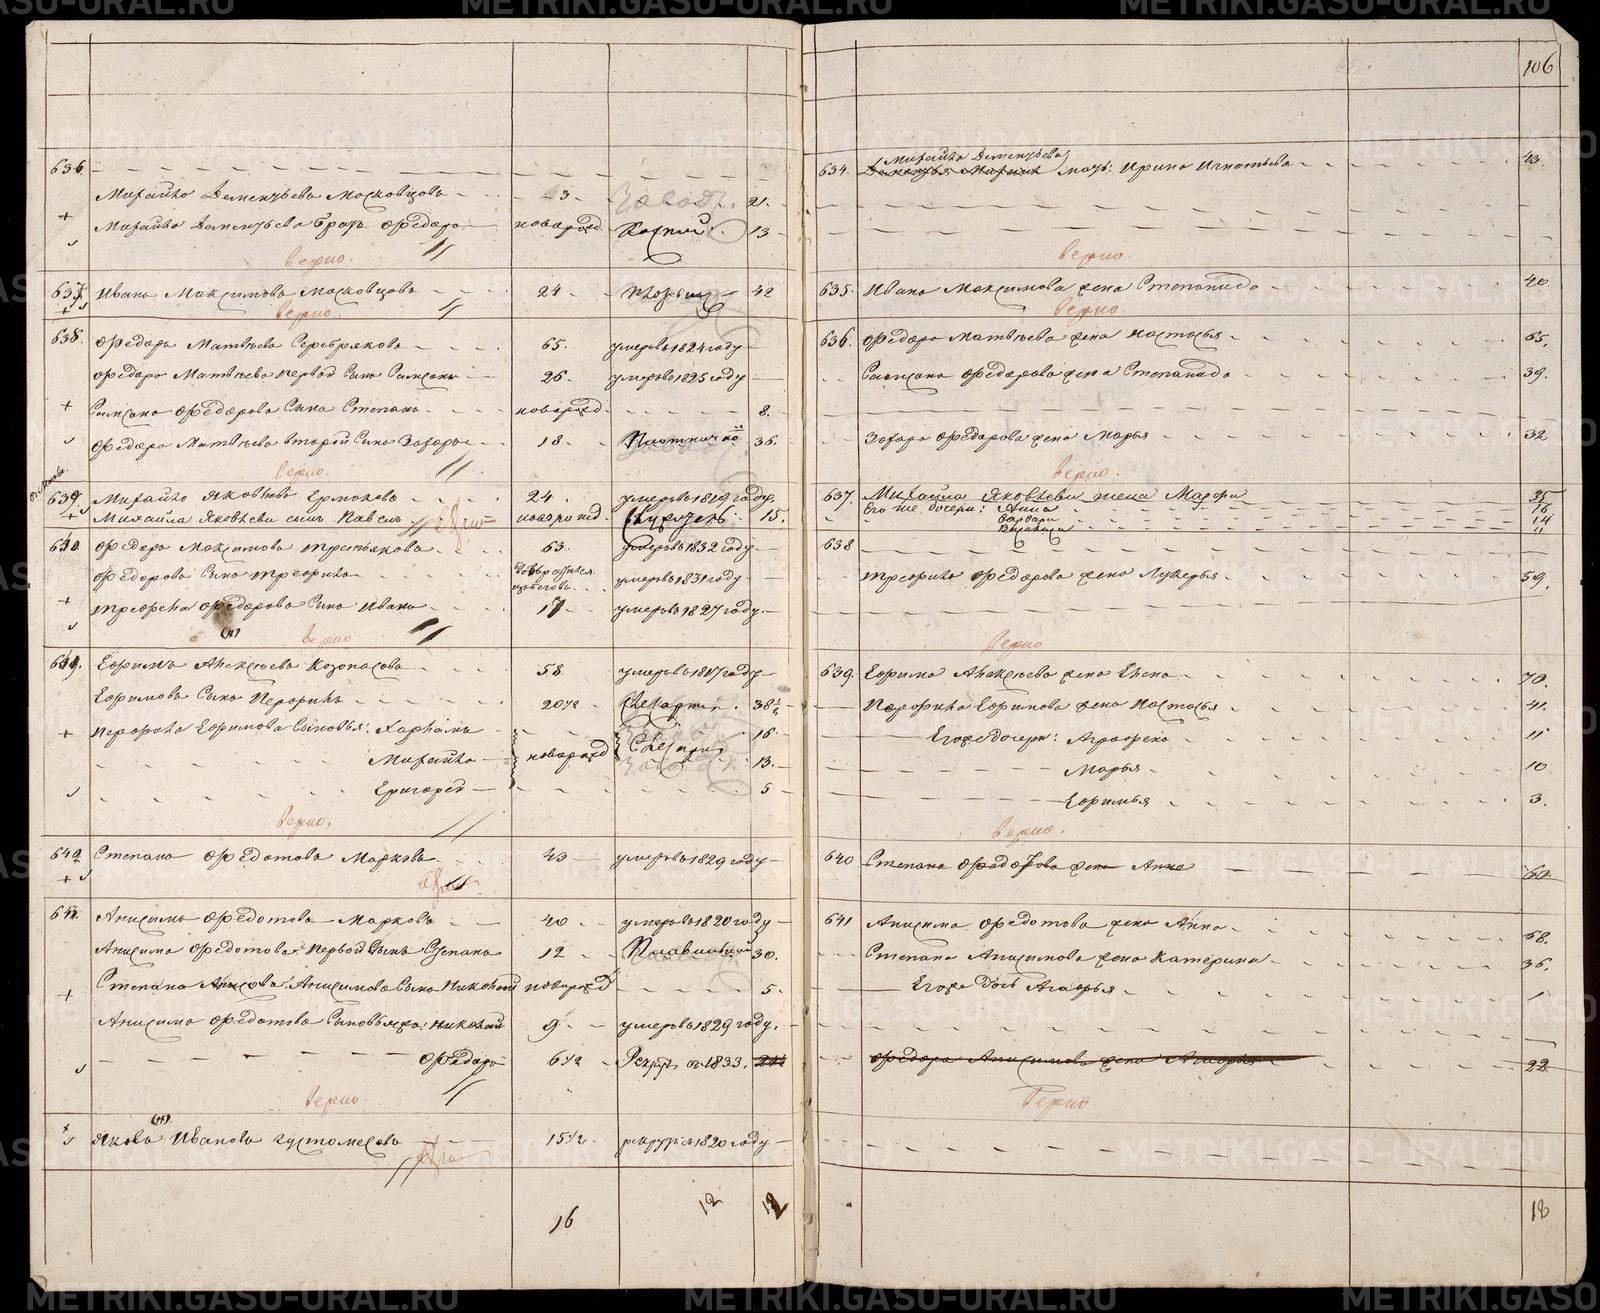 106
636.
Михайло Дементьевъ Московцовъ 43 21.
Михайла Дементьева братъ Федоръ новорожд. 13
верно.
637 Иванъ Максимовъ Московцовъ 24 42
верно.
638. Федоръ Матвѣевъ Серебряковъ 65. умеръ въ 1824 году
Федора Матвѣева первой сынъ Самсонъ 26. умеръ въ 1825 году
Самсона Федорова сынъ Степанъ новорожд. 8.
Федора Матвѣева второй сынъ Захаръ 18. Плотничной 35.
верно.
639. Михайло Яковлевъ Ермаковъ 24. умеръ въ 1819 году.
Михайла Яковлева сынъ Павелъ новорожд 15.
верно
Федоръ Максимовъ Третьяковъ 63. умеръ въ 1832 году.
Федоровъ сынъ Трефилъ умеръ въ 1831 году
Трефила Федорова сынъ Иванъ 17 умеръ въ 1827 году.
верно
Ефимъ Алексѣевъ Козопасовъ 58. умеръ въ 1817 году
Ефимовъ сынъ Перфилъ 20½ Слесарный 38½
Перфила Ефимова сыновья: Харламъ 16
Михайло новорожд Слесарн 13.
Григорей 5
верно.
640 Степанъ Федотовъ Марковъ 43 умеръ въ 1829 году
верно
641. Анисимъ Федотовъ Марковъ 40 умеръ въ 1820 году
Анисима Федотова первой сынъ Степанъ 12 30.
Степана Анисимова сынъ Николай новорожд 5.
Анисима Федотова сыновья: Николай 9 умеръ въ 1829 году.
Федоръ 6½ Рекрут. въ 1833.
верно.
Яковъ Ивановъ Густомесовъ 15½ рекрут. въ 1820 году
верно
16 12 12
634. Михайла Дементьева мать: Ирина Игнатьева 43.
верно.
635. Ивана Максимова жена Степанида 40
верно.
636. Федора Матвѣева жена Настасья 65.
Самсона Федорова жена Степанида 39.
Захара Федорова жена Марья 32
верно.
637. Михайла Яковлева жена Марфа 35
Его же дочери: Анна 16
Варвара 14
11
638
Трефила Федорова жена Лукерья 59.
верно
639. Ефима Алексѣева жена Елена 70.
Перфила Ефимова жена Настасья 41.
Его же дочери: Аграфена 11
Марья 10
Ефимья 3.
верно.
640 Степана Федотова жена Анна 60
641 Анисима Федотова жена Анна 68.
Степана Анисимова жена Катерина 36.
Его же дочь Агафья 1
Федора Анисимова жена 22
верно
18
METRIKI.GASO-URAL.RU